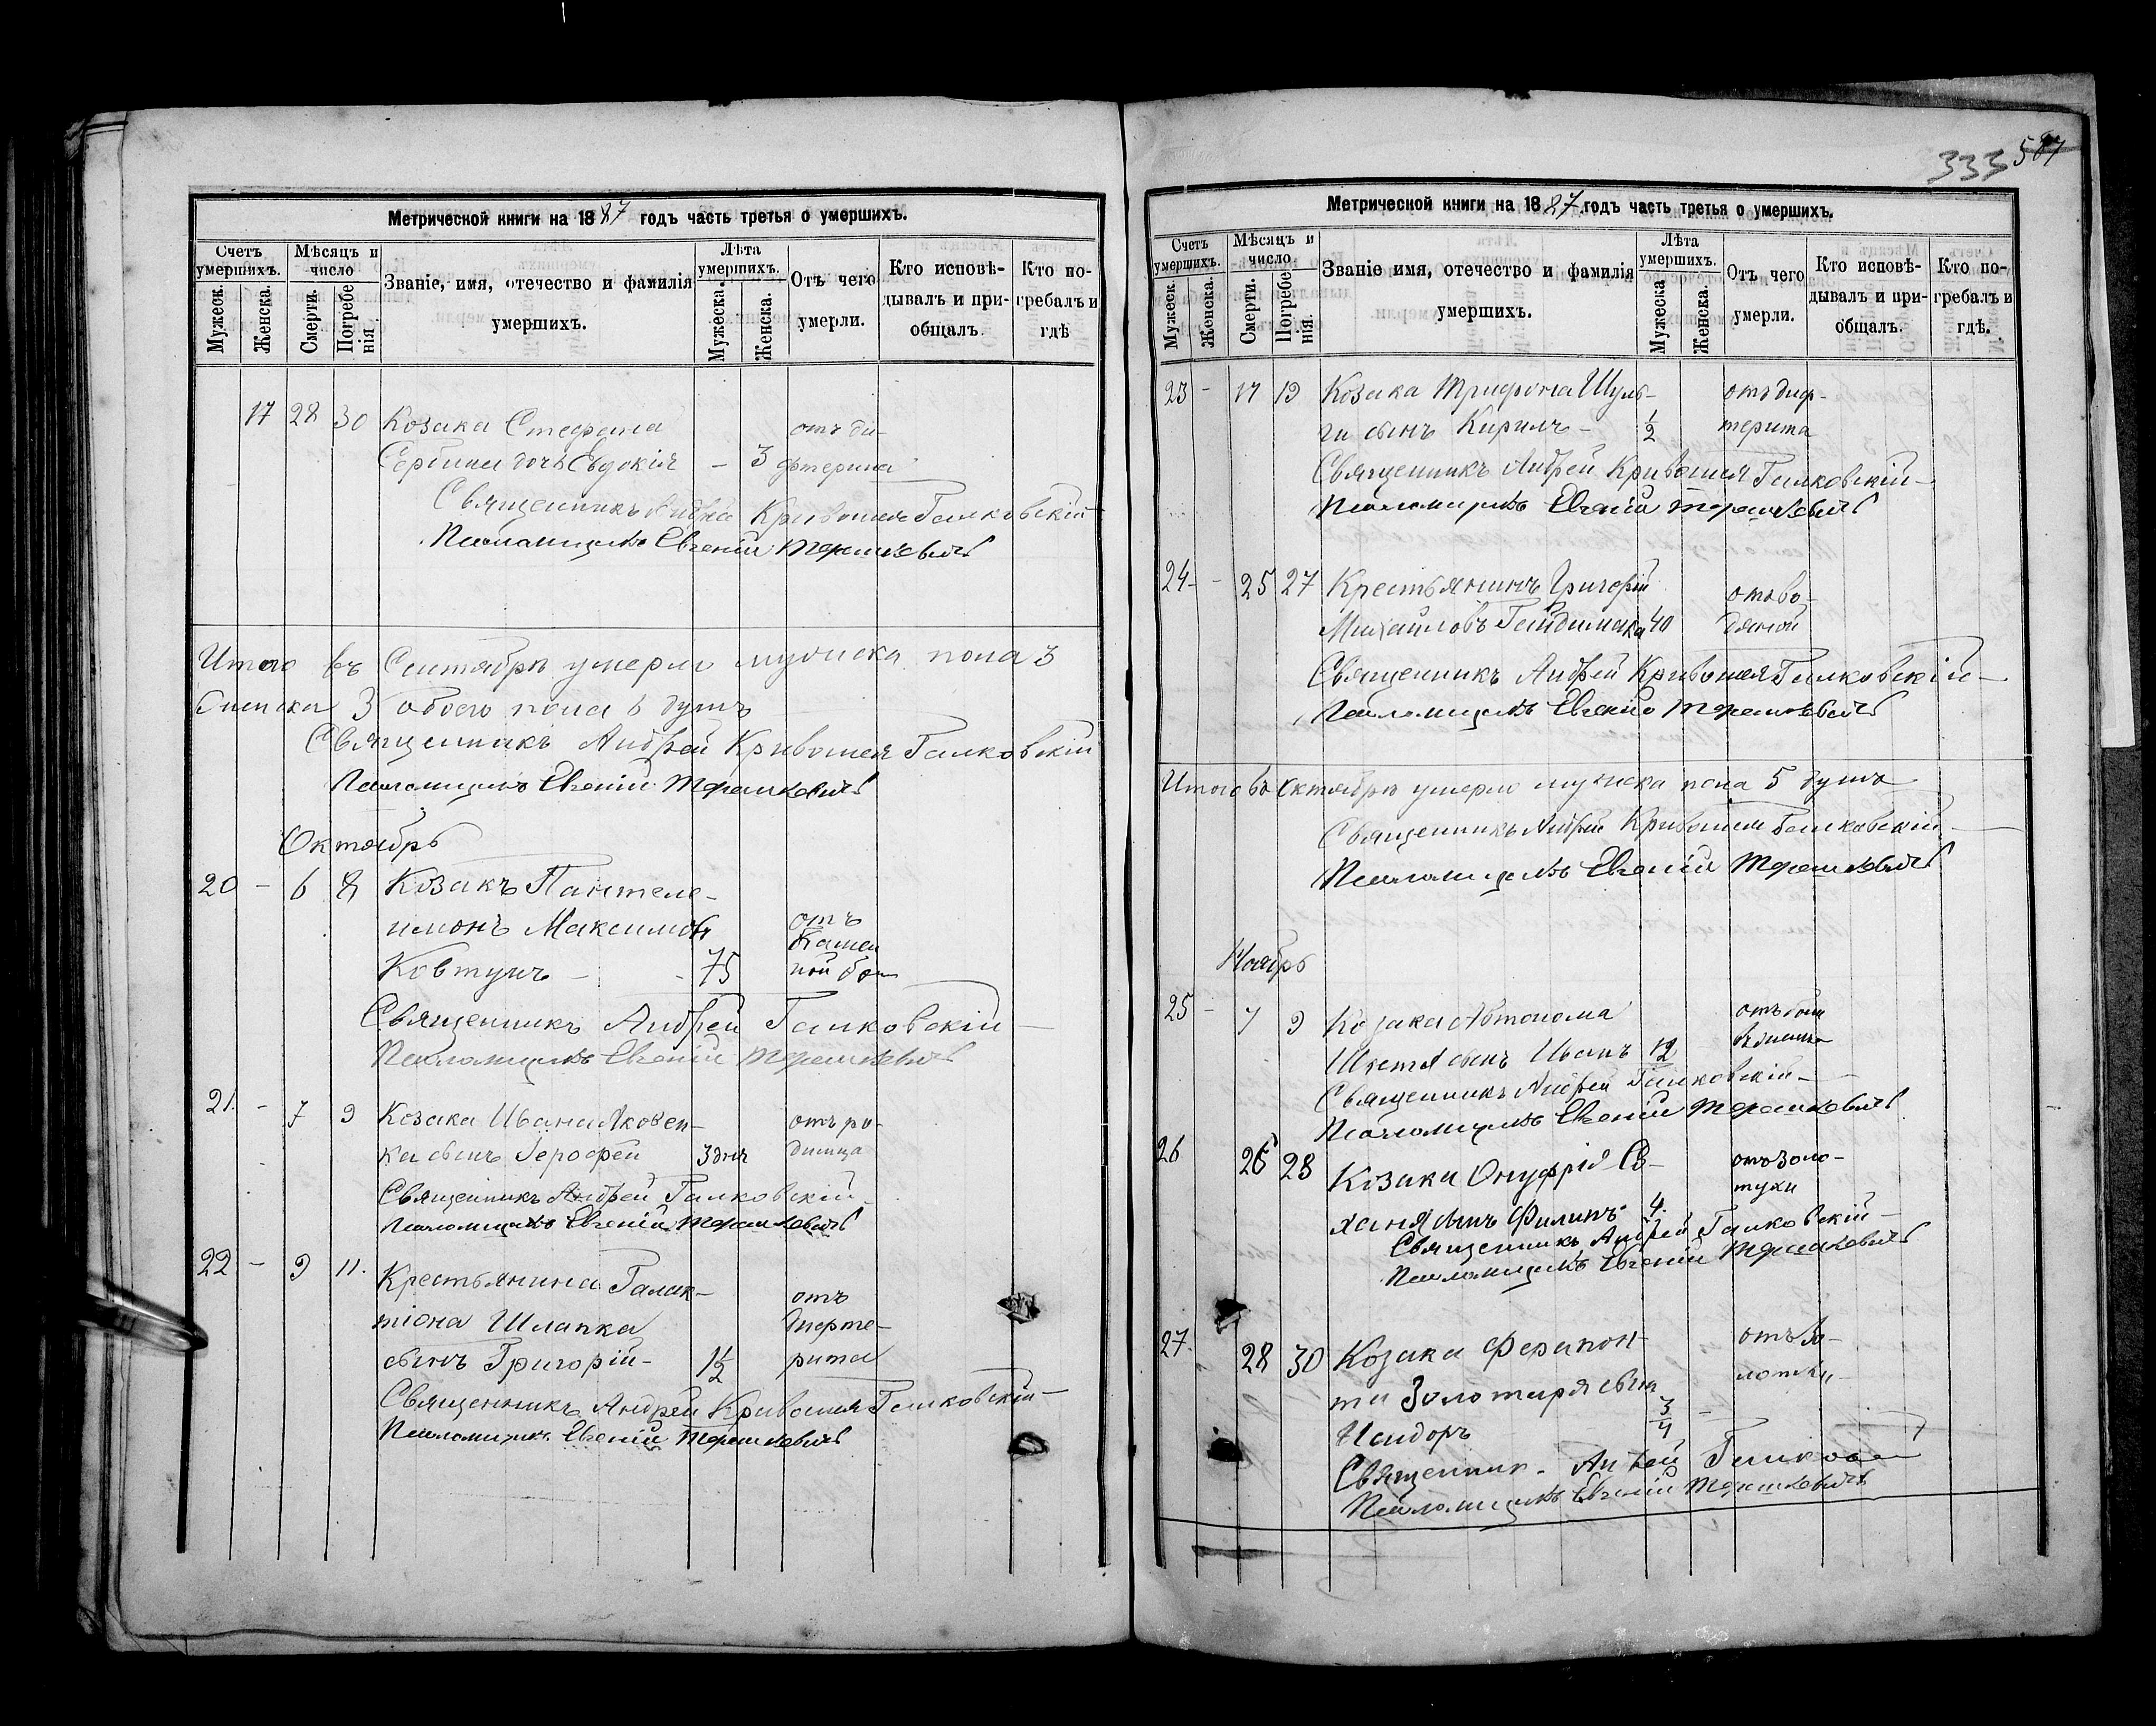 Метрической книги на 1887 годъ часть третья о умершихъ.
Счетъ умершихъ.
Мѣсяцъ и число
Званіе, имя, отечество и фамилія умершихъ.
Лѣта умершихъ.
Отъ чего умерли.
Кто исповѣдывалъ и пріобщалъ.
Кто погребалъ и гдѣ
Мужеск. Женска. Смерти. Погребенія Мужеска. Женска.
17 28 30 Козака Стефана отъ ди-
дочь Евдокія – 3 фтерита
Священникъ Андрей Кривошея Галковскій
Псаломщикъ Евгеній Терешкевичъ
Итого въ Сентябрѣ умерло мужеска пола 3
женска 3 обоего пола 6 душъ
Священникъ Андрей Кривошея Галковскій
Псаломщикъ Евгеній Терешкевичъ
Октябрь
20 – 6 8 Козакъ Пантеле-
имонъ Максимовъ отъ
Камен
Ковтунъ – 75 ной бо
Священникъ Андрей Галковскій
Псаломщикъ Евгеній Терешкевичъ
21. – 7 9 Козака Ивана Яковен- отъ ро-
ка сынъ Герофей 3 дня димца
Священникъ Андрей Галковскій
Псаломщикъ Евгеній Терешкевичъ
22 – 9 11. Крестьянина Галак- отъ
тіона Шлапка
сынъ Григорій – 1½ рита
Священникъ Андрей Кривошея Галковскій
Псаломщикъ Евгеній Терешкевичъ
333 587
Метрической книги на 1887 годъ часть третья о умершихъ.
Счетъ умершихъ.
Мѣсяцъ и число
Званіе имя, отечество и фамилія умершихъ.
Лѣта умершихъ.
Отъ чего умерли.
Кто исповѣдывалъ и пріобщалъ.
Кто погребалъ и гдѣ.
Мужеск. Женска. Смерти. Погребенія. Мужеска Женска.
23 – 17 19 Козака Трифона Шуль- отъ диф-
ги сынъ Кирилъ – ½ терита
Священникъ Андрей Кривошея Галковскій
Псаломщикъ Евгеній Терешкевичъ
24 – 25 27 Крестьянинъ Григорій отъ во-
Михайловъ Гайдимака 40 дяной
Священникъ Андрей Кривошея Галковскій
Псаломщикъ Евгеній Терешкевичъ
Итого въ Октябрѣ умерло мужеска пола 5 душъ
Священникъ Андрей Кривошея Галковскій
Псаломщикъ Евгеній Терешкевичъ
Ноябрь
25 – 7 9 Козака Автонома
сынъ Иванъ 12
Священникъ Андрей Галковскій
Псаломщикъ Евгеній Терешкевичъ
26 26 28 Козака Онуфрія Св- отъ золо-
ханя сынъ Филипъ 4. тухи
Священникъ Андрей Галковскій
Псаломщикъ Евгеній Терешкевичъ
27. 28 30 Козака Ферапон-
та Золотаря сынъ
Исидоръ ¾ –
Священник. Андрей
Псаломщикъ Евгеній Терешкевичъ